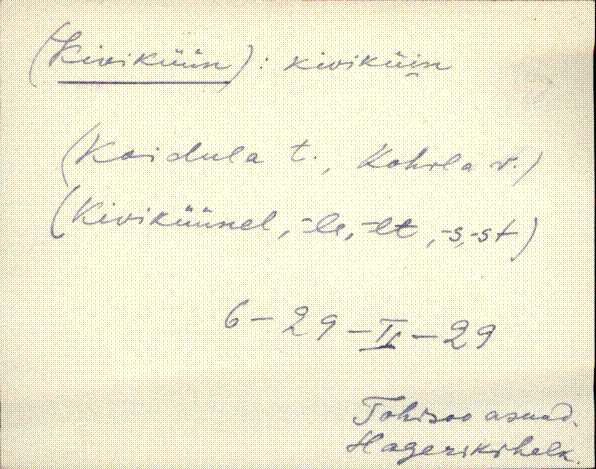 (Kiviküün): kiviküin
(Koidula t., Kohila v.)
(Kiviküünel, -le, -lt, -s, -st)
6-29-II-29
Tohisoo asund.
Hageri kihelk.